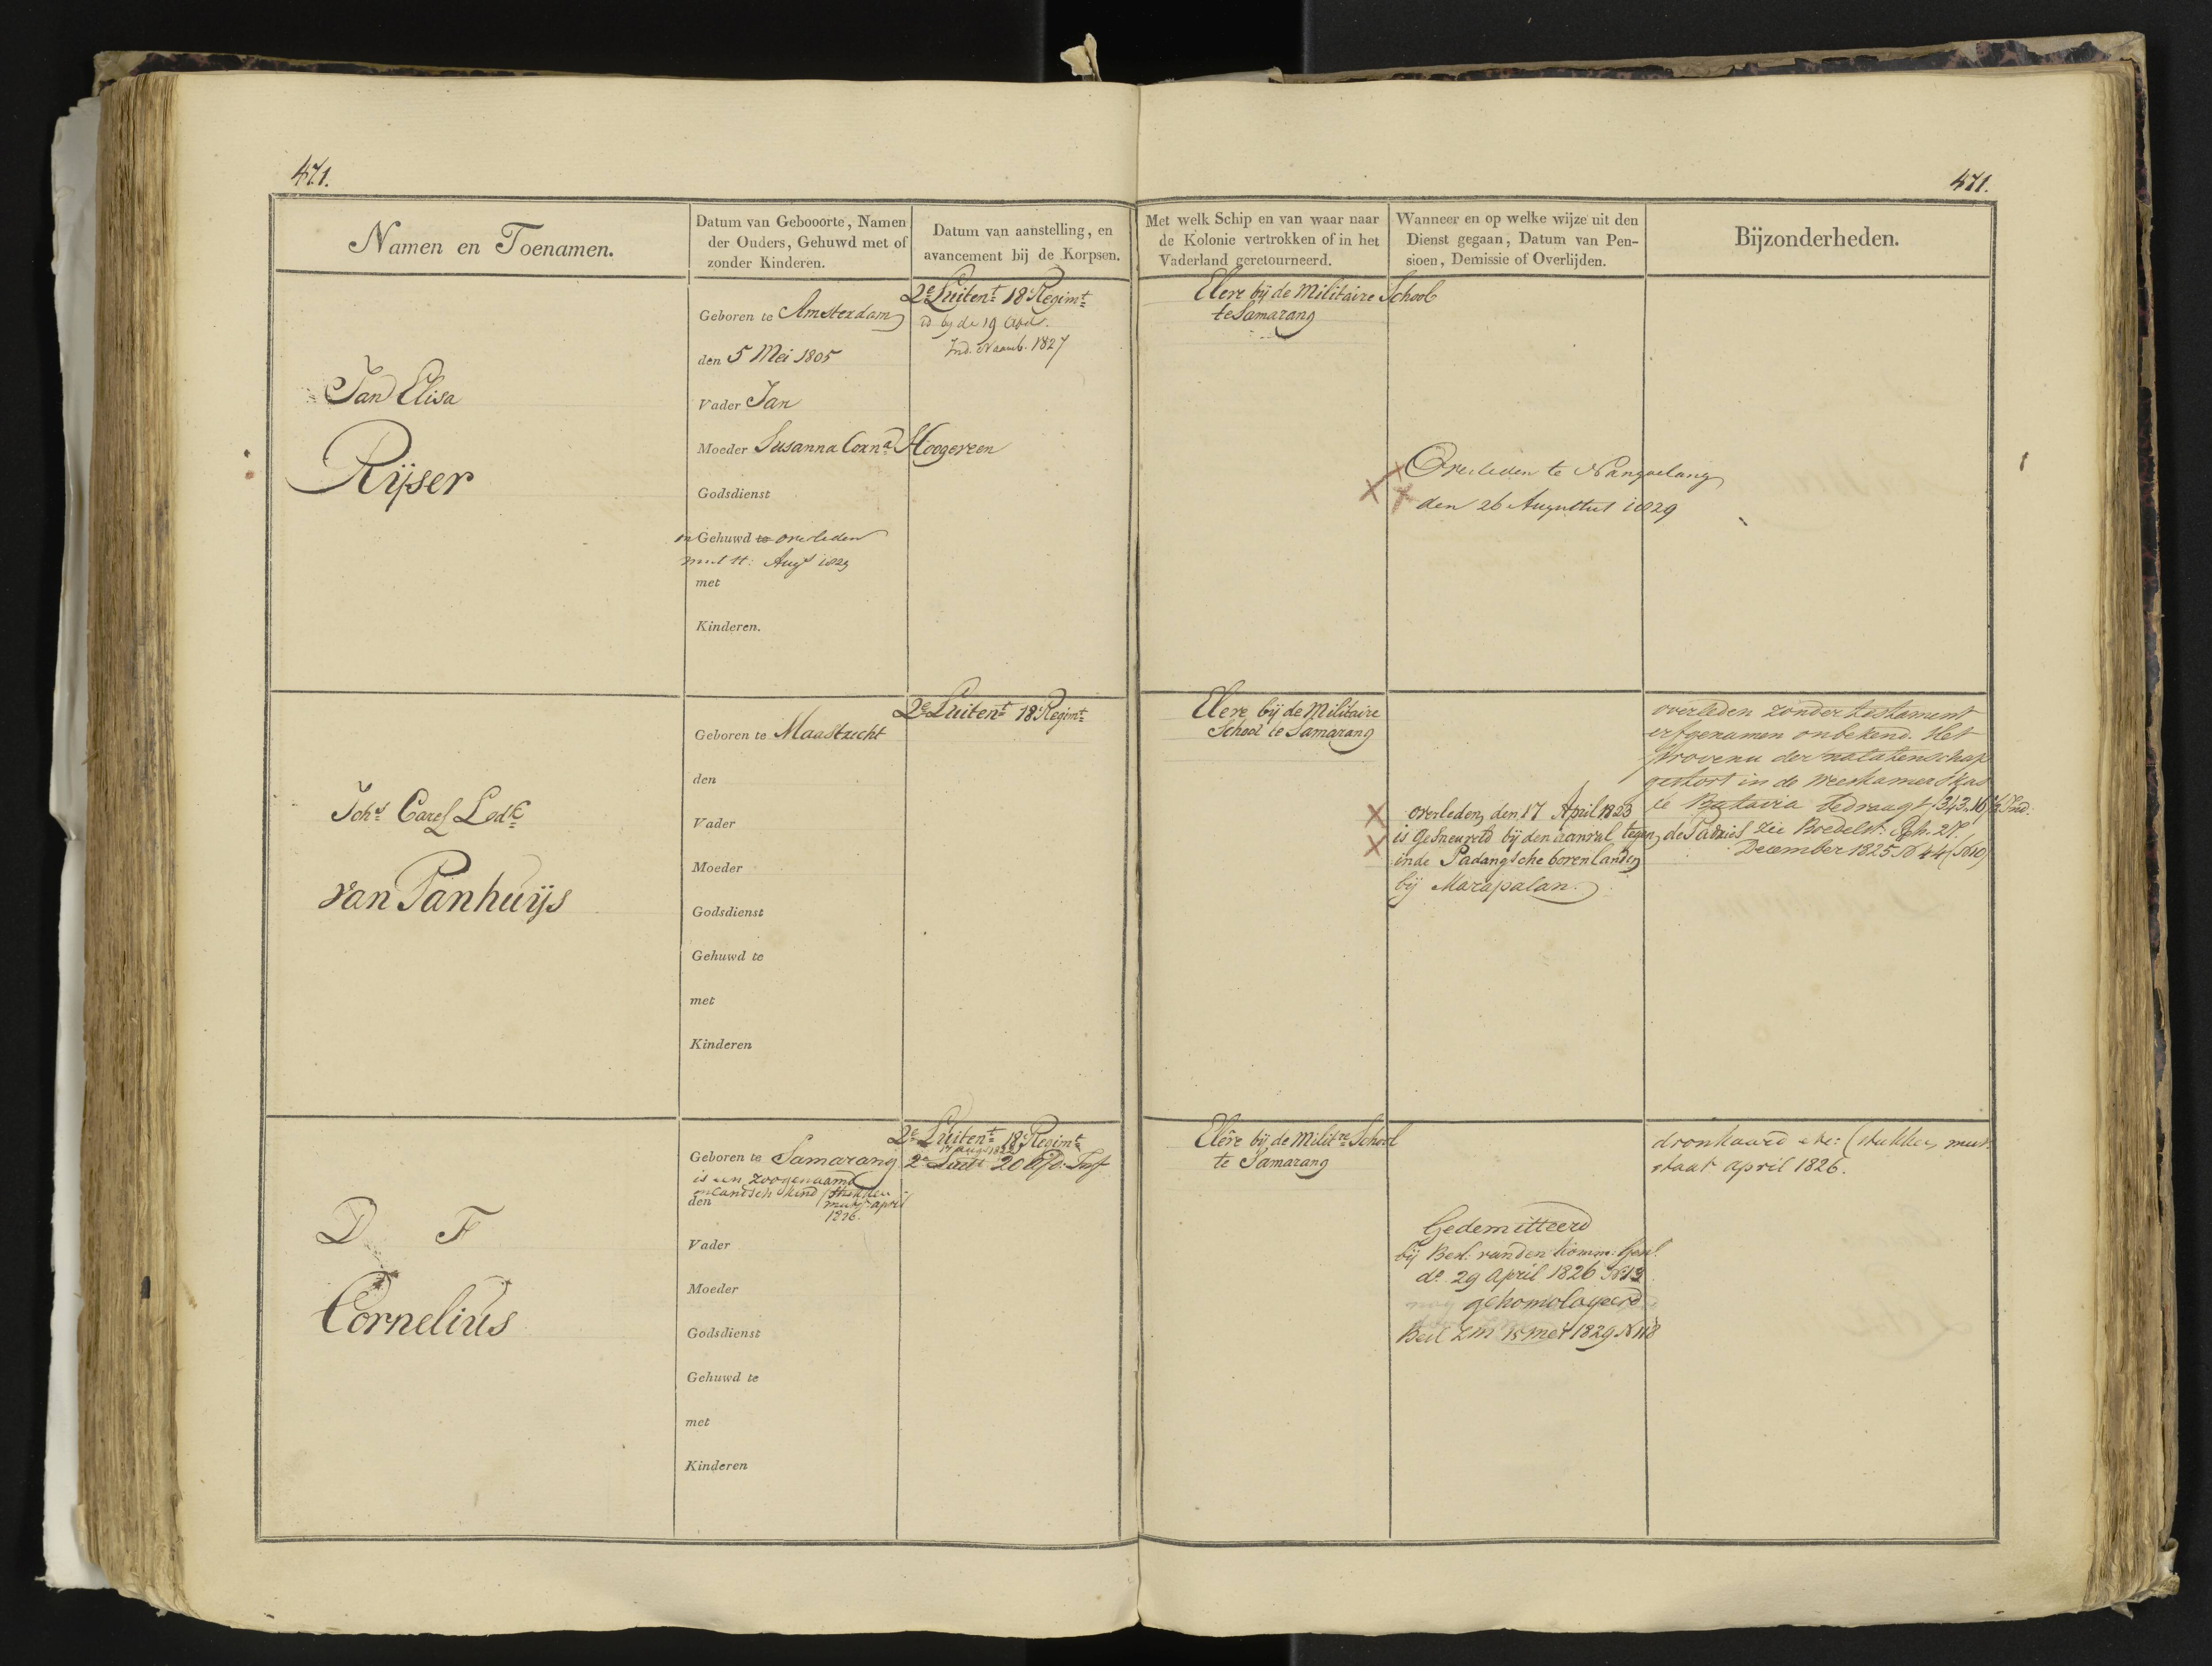 471.
471.
Namen en Toenamen.
Datum van Gebooorte, Namen
der Ouders, Gehuwd met of
zonder Kinderen.
Datum van aanstelling, en
avancement bij de Korpsen.
Met welk Schip en van waar naar
de Kolonie vertrokken of in het
Vaderland geretourneerd.
Wanneer en op welke wijze uit den
Dienst gegaan, Datum van Pen-
sioen, Demissie of Overlijden.
Bijzonderheden.
Jan Elisa
Rijser
Geboren te Amsterdam
den 5 Mei 1805
Vader Jan
Moeder Susanna Corna Hoogeveen
Godsdienst
Gehuwd te overleden
Augt 1829
met
Kinderen.
2e Luitent 18e Regimt
id by de 19 Afd.
Ind. Naamb. 1827
Eleve bij de Militaire School
te Samarang
Overleden te
den 26 Augustus 1829
Johs Carel Lodk
van Panhuijs
Geboren te Maastrecht
den
Vader
Moeder
Godsdienst
Gehuwd te
met
Kinderen
2e Luitent 18e Regimt
Eleve bij de Militaire
School te Samarang
overleden den 17 April 1823
is Gesneuveld bij den aanval tegen de Padries
in de Padangsche bovenlanden
bij Marapalan.
overleden zonder testament
erfgenamen onbekend. Het
provenu der nalatenschap
gestort in de weeskamers kas
te Batavia bedraagt 343.16
zie Boedelst:
December 1825 N 44
D F
Cornelius
Geboren te Samarang
is een zoogenaamd
inlandsch kind (stukken
den
muts april
1826
Vader
Moeder
Godsdienst
Gehuwd te
met
Kinderen
2e Luitent 18e Regimt
2e Luit 20 Inf
Elève bij de Militre School
te Samarang
Gedemitteerd
bij Besl. van den Komm: Genl.
do. 29 April 1826 N 13
gehomologeerd
Besl ZM 15 mei 1829 N 118
dronkaard etc: (stukken mut:
staat april 1826.